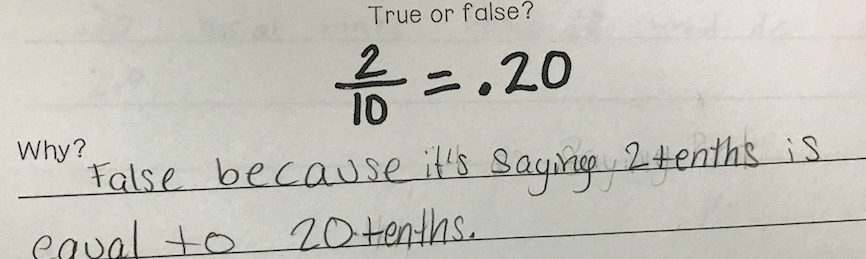 True or false?
2/10 = .20
Why?
False because it's saying 2 tenths is
equal to 20 tenths.